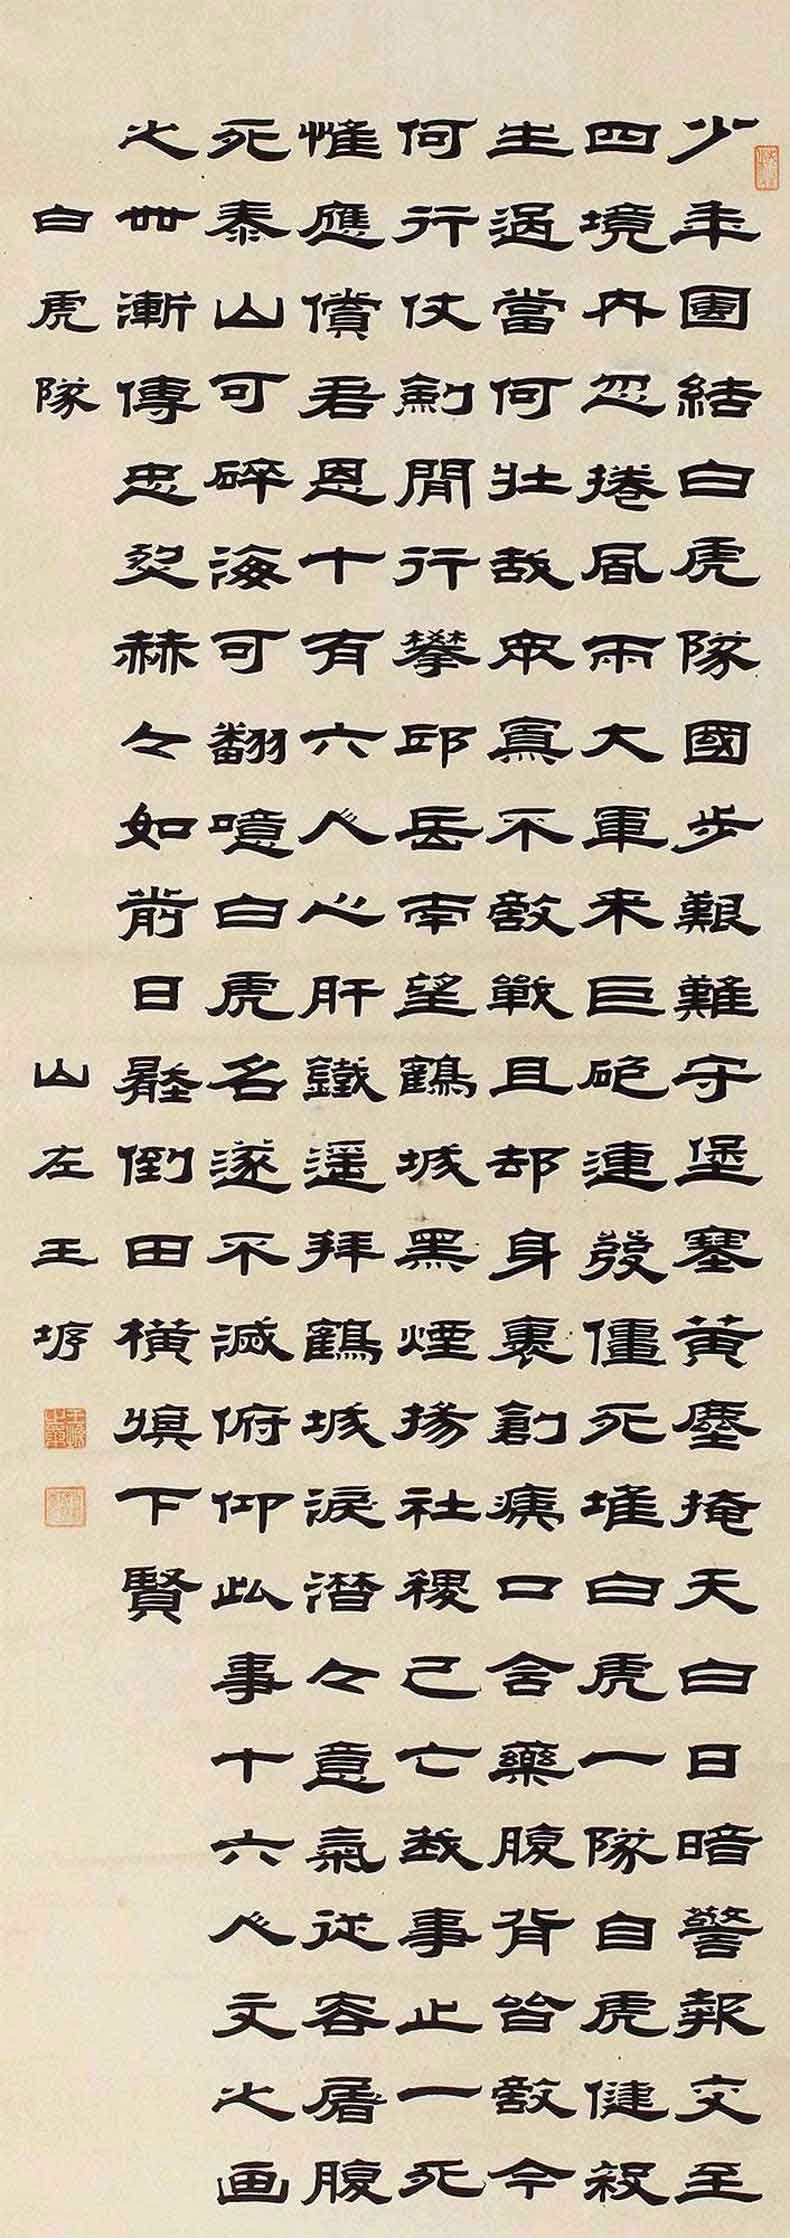 少年團結白虎隊國步艱難守堡塞黃塵掩天白日暗警報交至
四境內忽捲風雨大軍来巨砲連發僵死堆白虎一隊自虎健殺
生過當何壯哉眾寡不敵戰且却身裹創痍口含藥腹背皆敵今
何行仗劍間行攀邱岳南望鶴城黑煙揚社稷已亡我事止一死
惟應償君恩十有六人心肝鐵遥拜鶴城淚潜々意氣從容屠腹
死泰山可碎海可翻噫白虎名遂不滅俯仰此事十六人文之画
之世漸傳忠烈赫々如前日壓倒田橫慎下賢
白虎隊 山左王垿